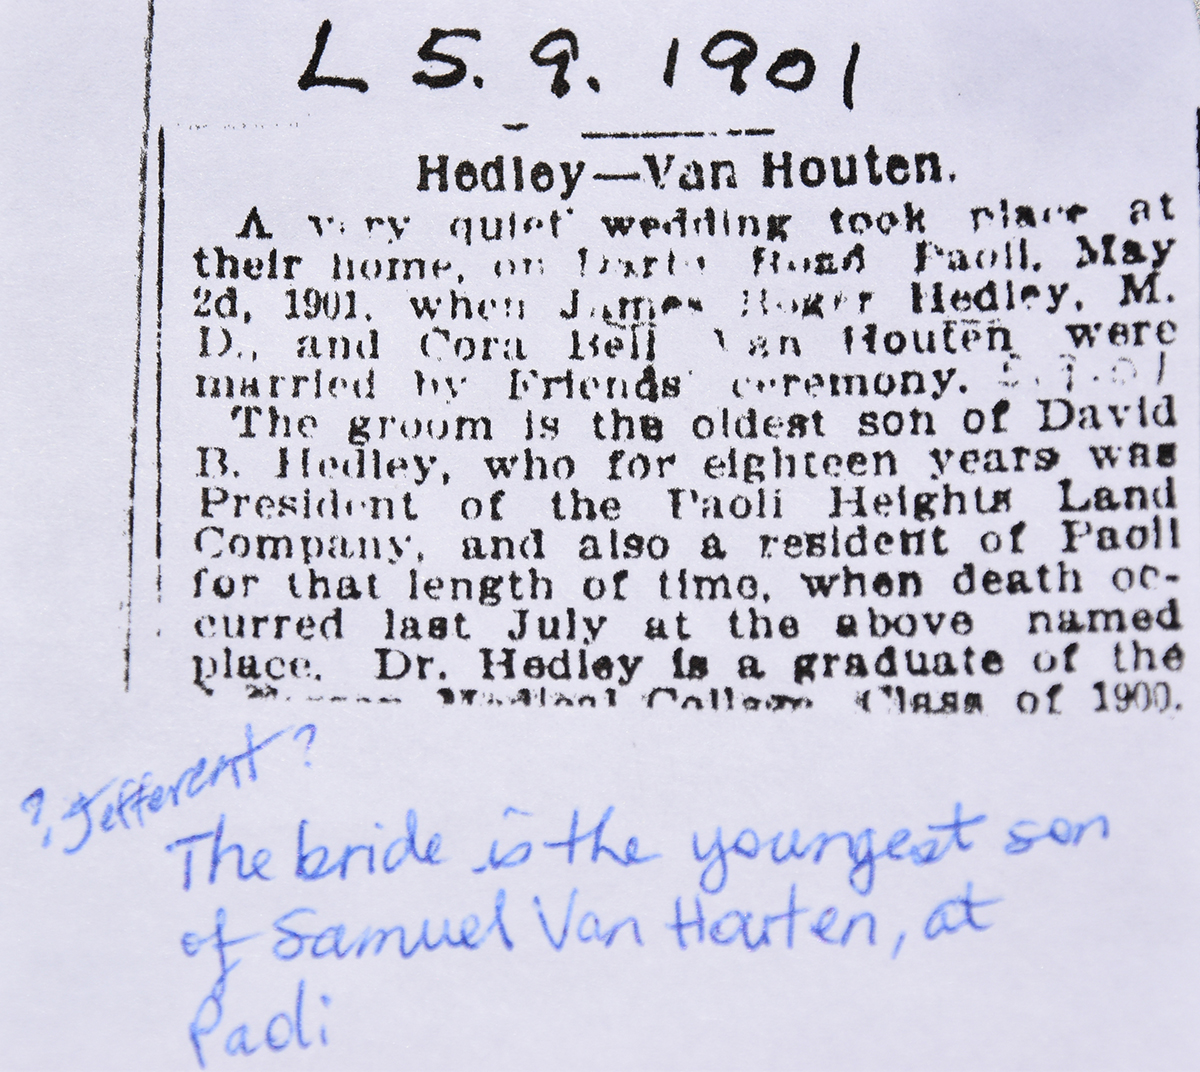 L 5. 9. 1901
Hedley—Van Houten.
A very quiet wedding took place at
their home, on Darby Road Paoli, May
2d, 1901, when James Roger Hedley, M.
D., and Cora Bell Van Houten were
married by Friends' ceremony.
The groom is the oldest son of David
B. Hedley, who for eighteen years was
President of the Paoli Heights Land
Company, and also a resident of Paoli
for that length of time, when death oc-
curred last July at the above named
place. Dr. Hedley is a graduate of the
Medical College Class of 1900.
?, Jefferent ?
The bride is the youngest son
of Samuel Van Houten, at
Paoli